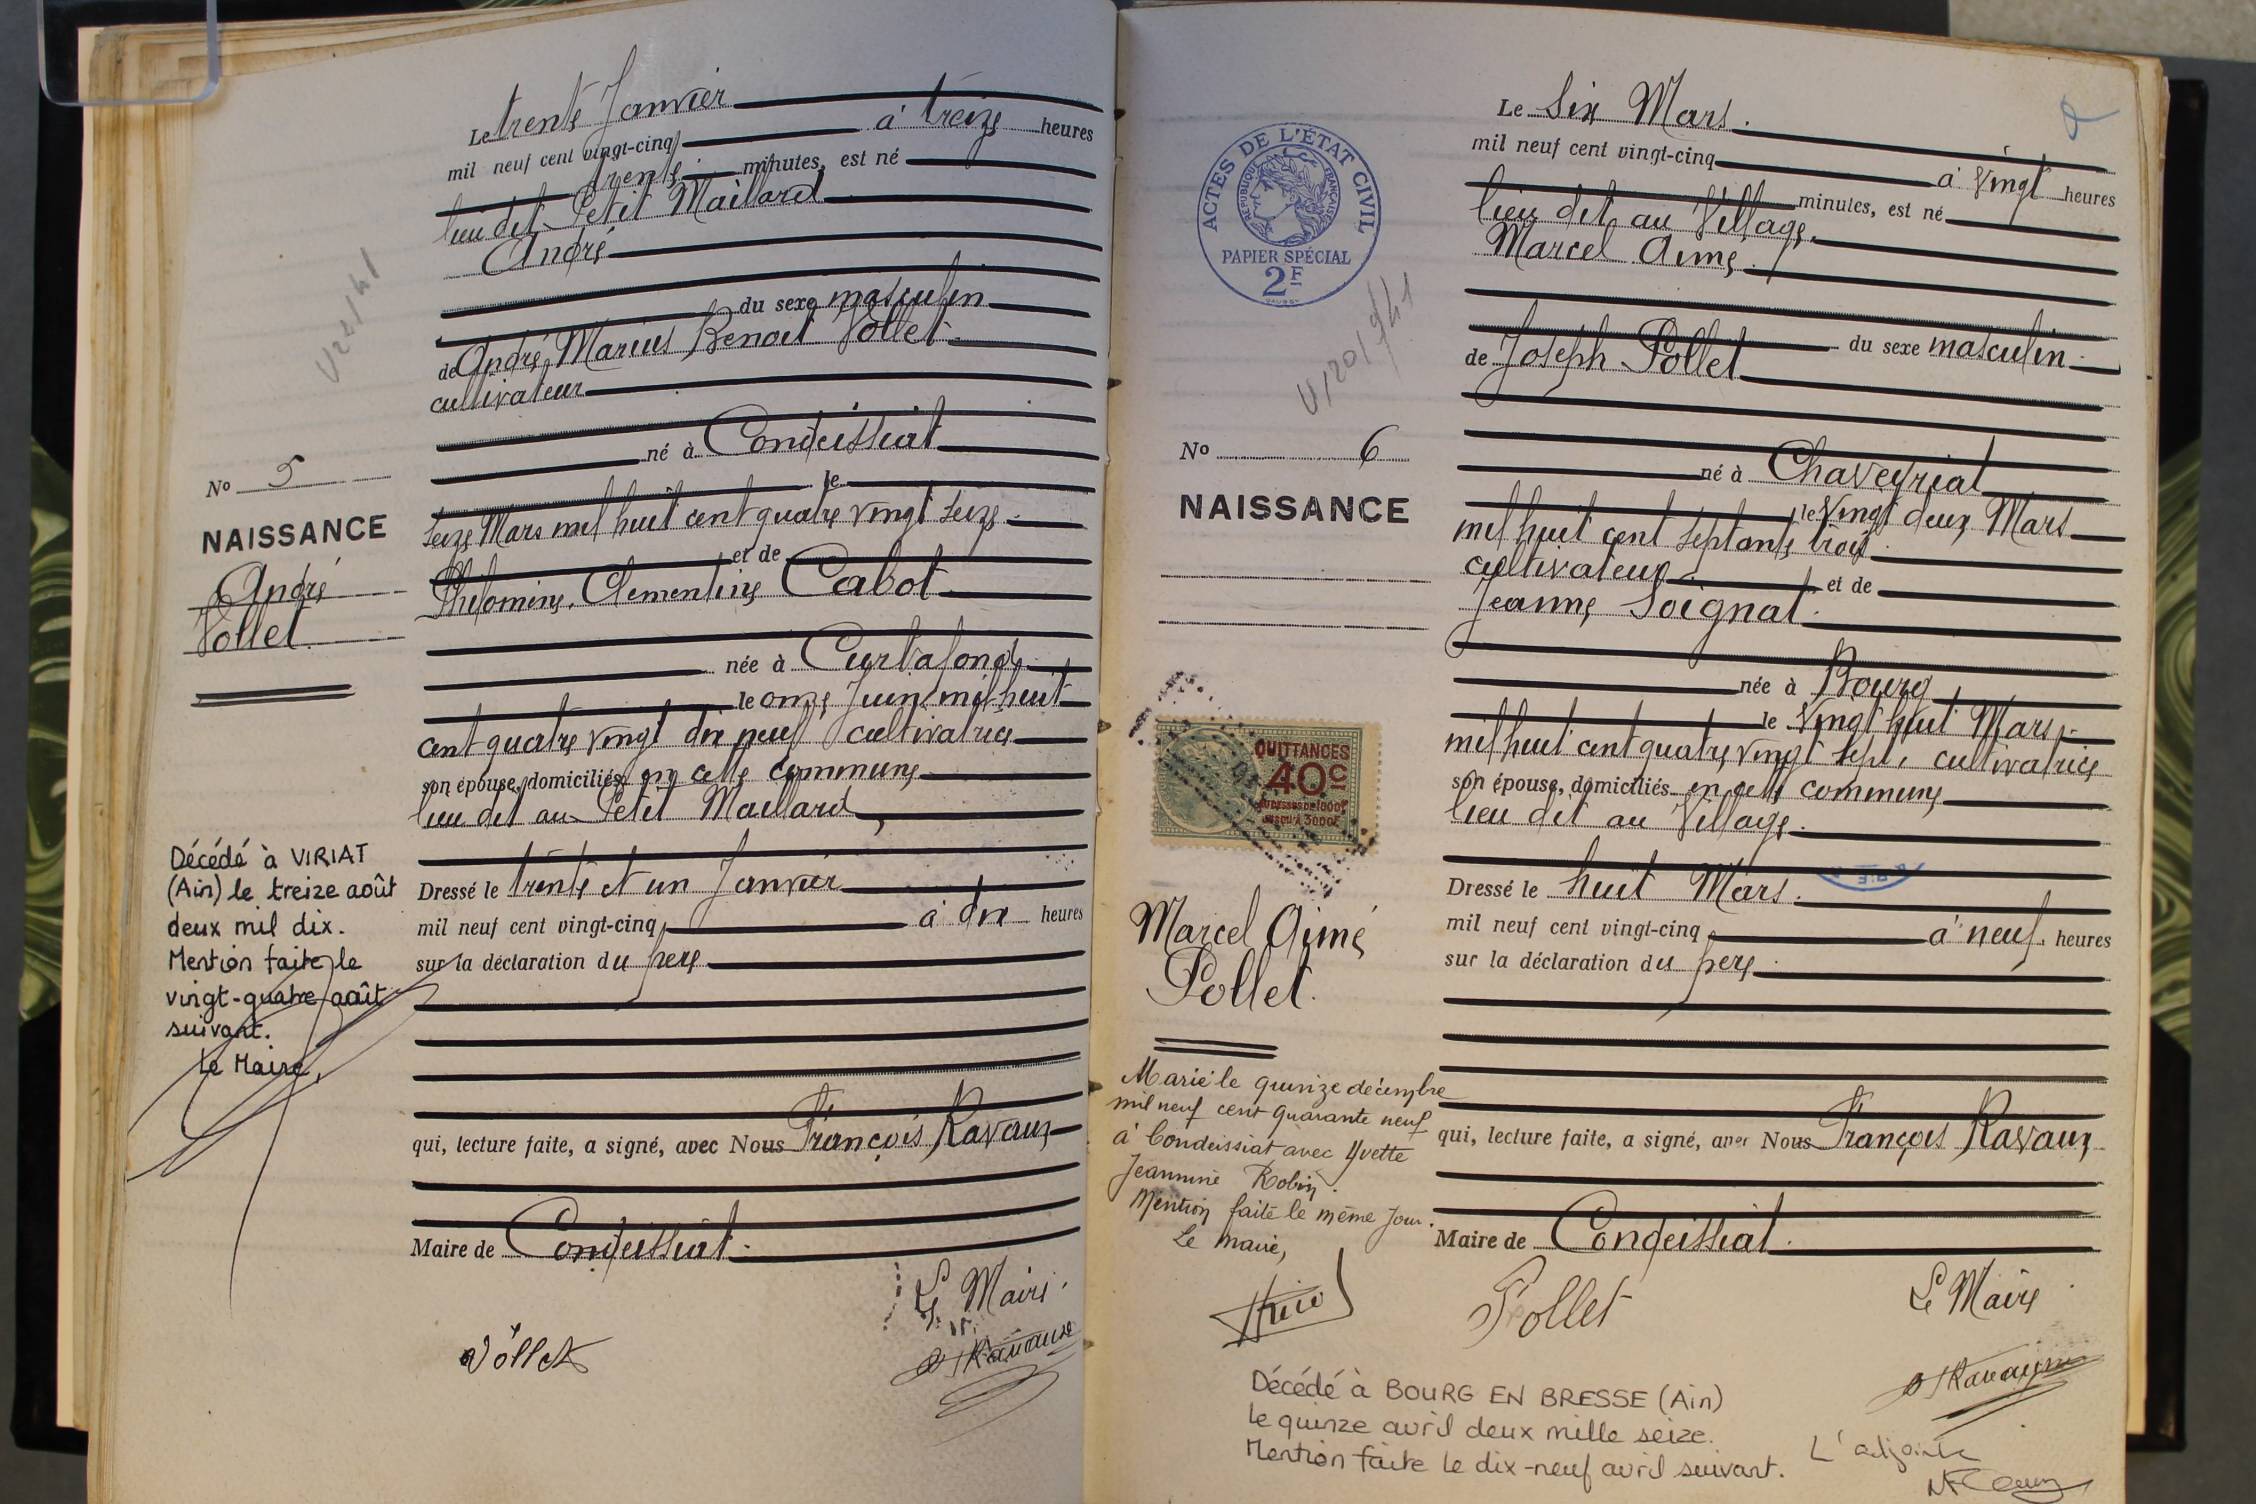 Le trente Janvier
mil neuf cent vingt-cinq à treize heures
trente minutes, est né
lieu dit Petit Maillard
André
du sexe masculin
de André, Marius Benoit Vollet
cultivateur
né à Condeissiat
le
seize Mars mil huit cent quatre vingt seize
et de
Philomène, Clementine Cabot
née à Curtafond
le onze Juin mil huit
cent quatre vingt dix neuf cultivatrice
son épouse, domiciliés en cette commune
lieu dit au Petit Maillard
Dressé le trente et un Janvier
mil neuf cent vingt-cinq, à dix heures
sur la déclaration du père
qui, lecture faite, a signé, avec Nous François Ravaux
Maire de Condeissiat.
Le Maire.
Vollet
Ravaux
No 5
NAISSANCE
André
Vollet
Décédé à VIRIAT
(Ain) le treize août
deux mil dix.
Mention faite le
vingt-quatre août
suivant.
le Maire,
Le Six Mars.
mil neuf cent vingt-cinq à vingt heures
minutes, est né
lieu dit au Village.
Marcel Aimé
du sexe masculin
de Joseph Pollet
né à Chaveyriat
le vingt deux Mars
mil huit cent septante trois
cultivateur et de
Jeanne Soignat.
née à Bourg
le vingt huit Mars
mil huit cent quatre vingt sept, cultivatrice
son épouse, domiciliés en cette commune
lieu dit au Village.
Dressé le huit Mars.
mil neuf cent vingt-cinq à neuf. heures
sur la déclaration du père
qui, lecture faite, a signé, avec Nous François Ravaux
Maire de Condeissiat.
Pollet
Le Maire
Ravaux
ACTES DE L'ÉTAT CIVIL
RÉPUBLIQUE FRANÇAISE
PAPIER SPÉCIAL
2F
No 6
NAISSANCE
QUITTANCES
40c
JUSQU'À 3000F
Marcel Aimé
Pollet.
Marié le quinze décembre
mil neuf cent quarante neuf
à Condeissiat avec Yvette
Jeannine Robin.
Mention faite le même jour.
Le maire,
Décédé à BOURG EN BRESSE (Ain)
le quinze avril deux mille seize.
Mention faite le dix-neuf avril suivant.
L'adjointe